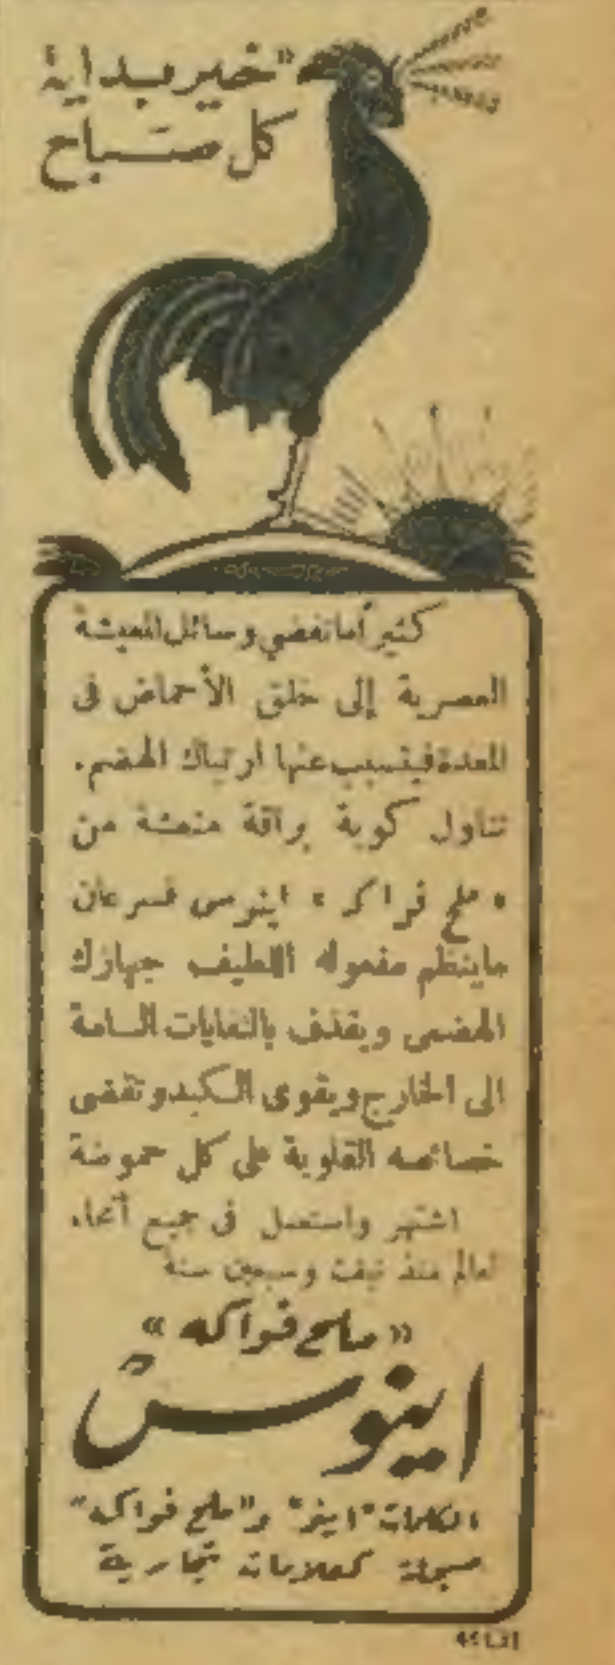 "خير بداية
كل صباح
كثيراً ما تفضي وسائل المعيشة
العصرية إلى خلق الأحماض في
المعدة فيتسبب عنها ارتباك الهضم.
تناول كوبة براقة منعشة من
« ملح فواكه » اينوس فسرعان
ما ينظم مفعوله اللطيف جهازك
الهضمى ويقذف بالنفايات السامة
الى الخارج ويقوى الكبد وتقضى
خصائصه القلوية على كل حموضة
اشتهر واستعمل فى جميع أنحاء
العالم منذ نيف وسبعين سنة
« ملح فواكه »
اينوس
الكلمات "اينو" و"ملح فواكه"
مسجلة كعلامات تجارية